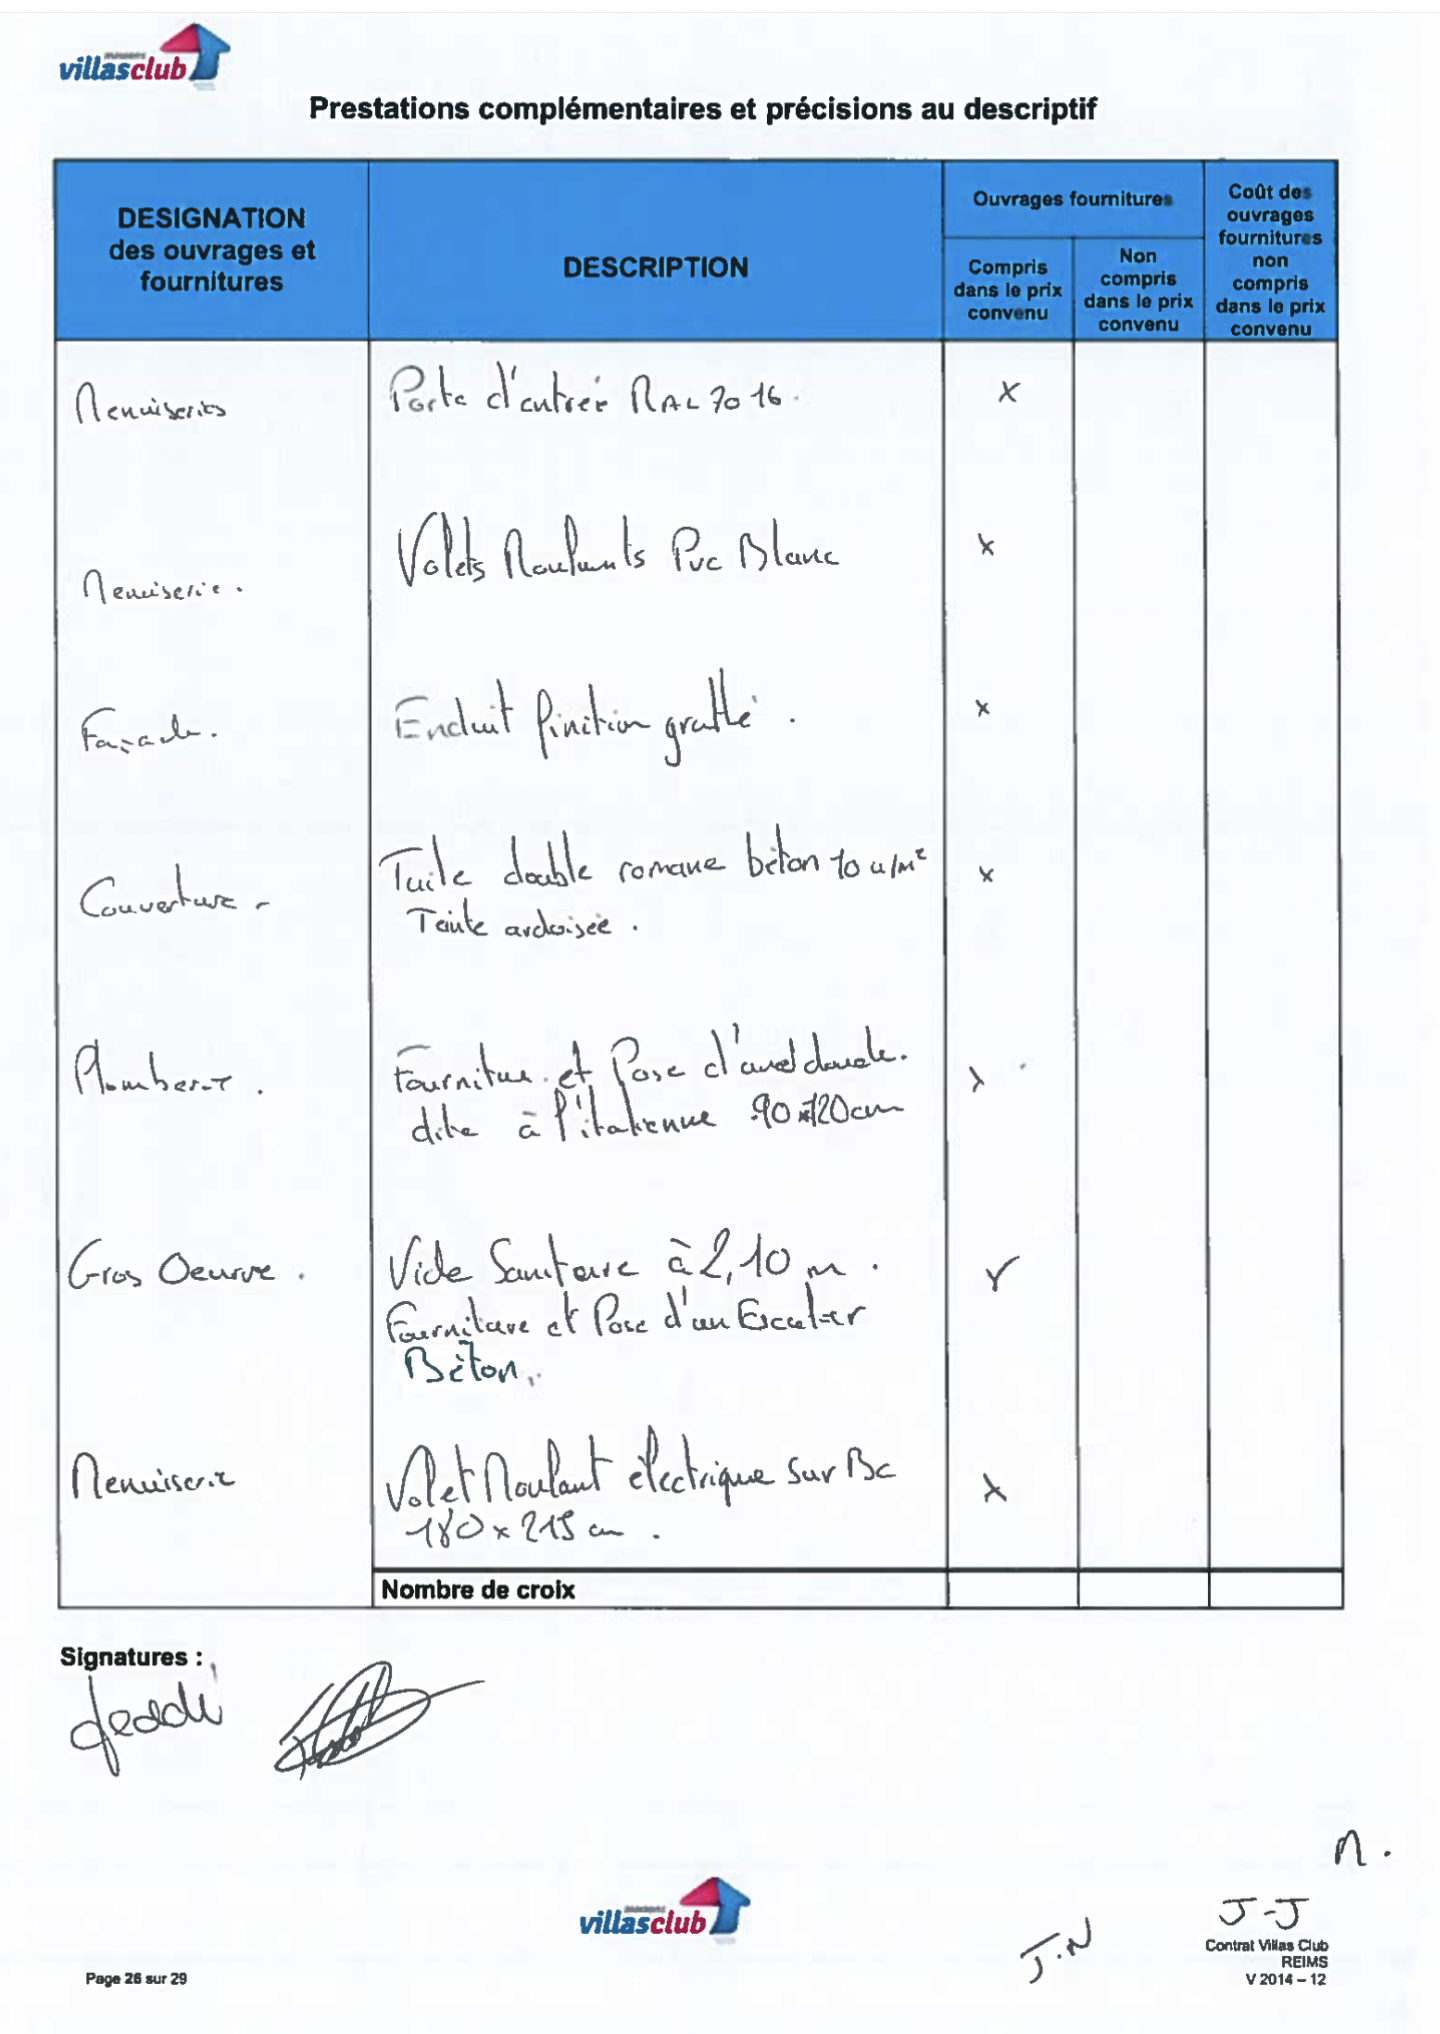 maisons
villasclub
Prestations complémentaires et précisions au descriptif
DESIGNATION
des ouvrages et
fournitures
DESCRIPTION
Ouvrages fournitures
Compris
dans le prix
convenu
Non
compris
dans le prix
convenu
Coût des
ouvrages
fournitures
non
compris
dans le prix
convenu
Menuiseries
Porte d'entrée RAL 7016.
x
Menuiserie.
Volets Roulants Pvc Blanc
x
Façade.
Enduit finition gratté.
x
Couverture -
Tuile double romane béton 10 u/m²
Teinte ardoisée.
x
Plomberie.
Fourniture et Pose d'
dite à l'italienne 90x120cm
x
Gros Oeuvre.
Vide Sanitaire à 2,10 m.
Fourniture et Pose d'un Escalier
Béton.
x
Menuiserie
Volet Roulant électrique sur Bc
180 x 215 cm.
x
Nombre de croix
Signatures :
villasclub
M.
J-J
J.N
Contrat Villas Club
REIMS
V 2014 – 12
Page 26 sur 29